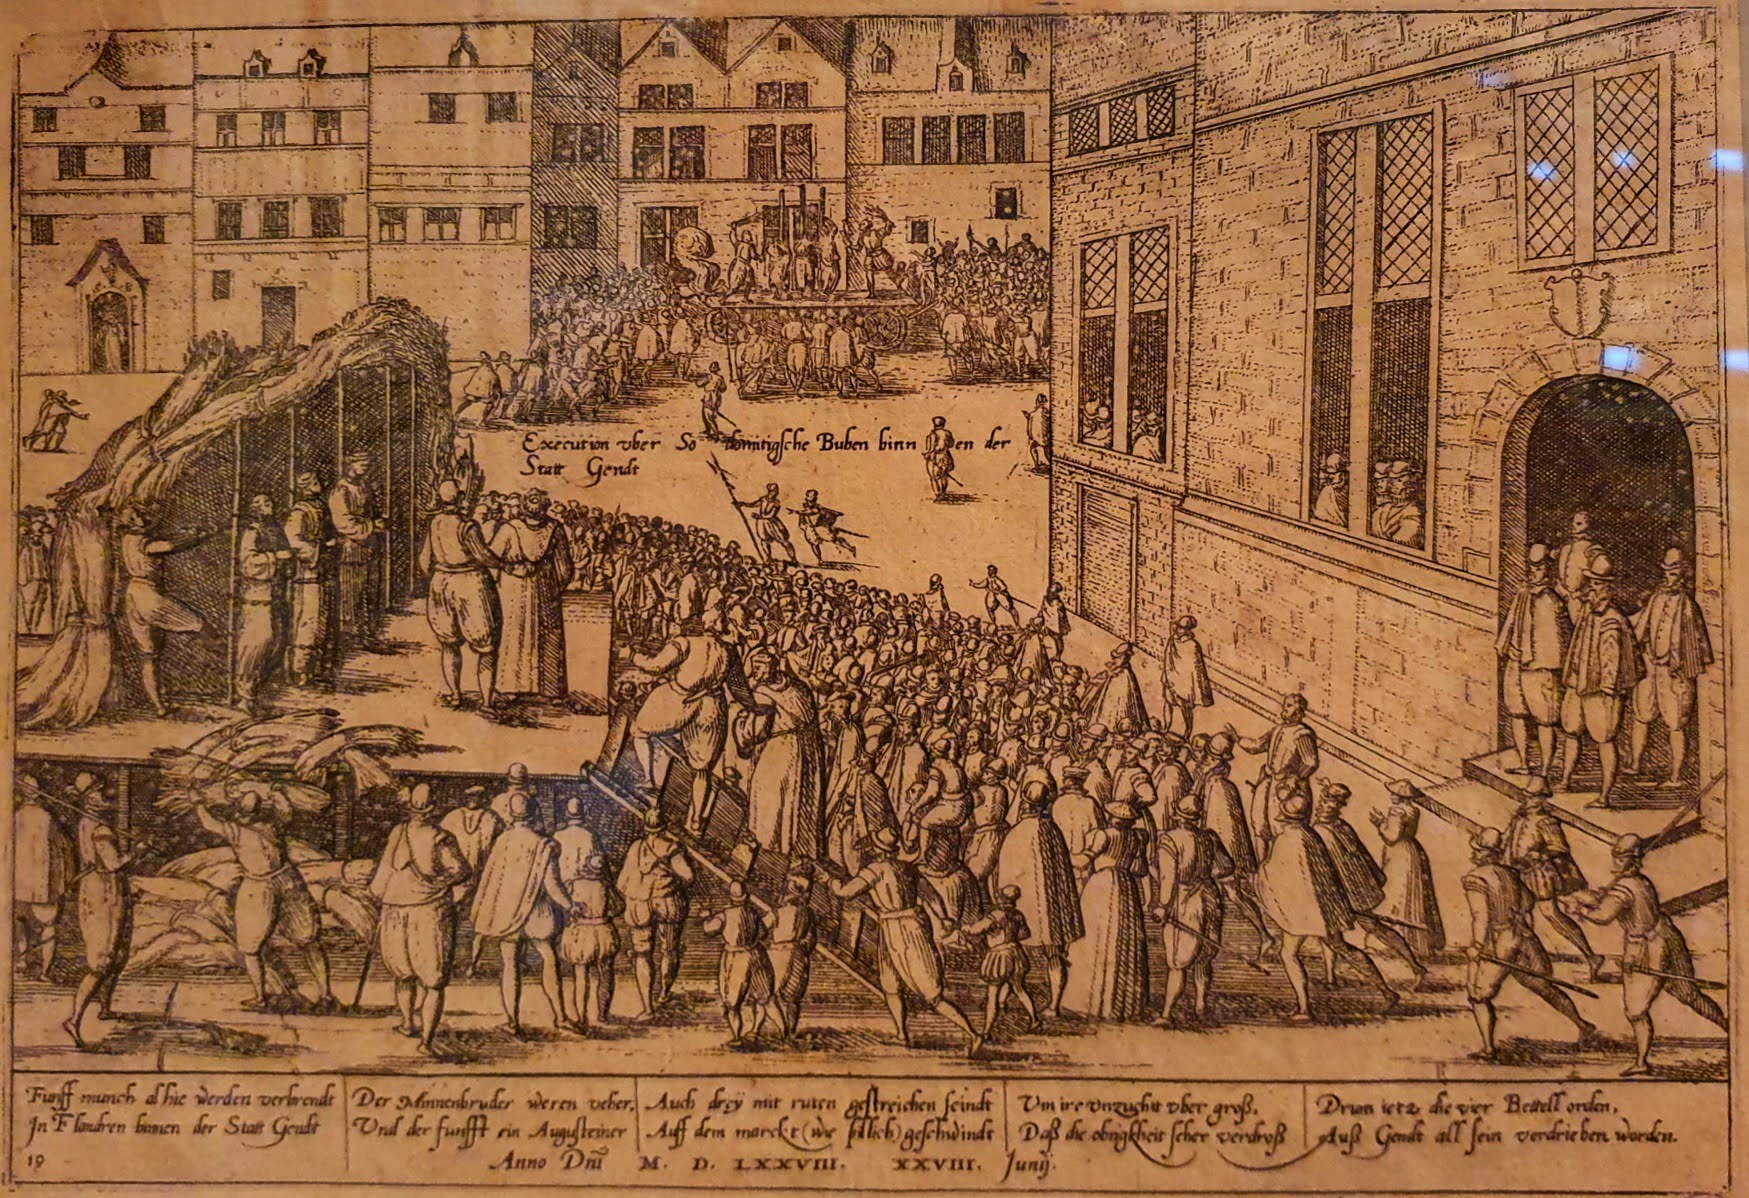 Execution vber So domitigsche Buben binn en der
Statt Gendt
Funff munch al hie werden verbrendt
In Flandren binnen der Statt Gendt
Der Minnenbruder weren veher,
Und der funfft ein Augusteiner
Auch dreÿ mit ruten gestreichen seindt
Auff dem marckt (wie pillich) geschwindt
Um ire vnzucht vber groß,
Daß die obrigkheit seher verdroß
Drum ietz die vier Bettell orden,
Auß Gendt all sein verdrieben worden.
19
Anno Dnī M. D. LXXVIII. XXVIII. Junij.